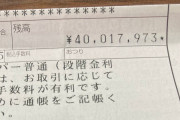 残高
¥40,017,973*
おつり
********
パー普通(段階金利
は、お取引に応じて
手数料が有利です。
めに通帳をご記帳く
い。